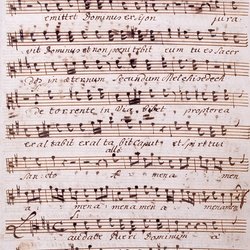 emittet Dominus ex sion jura
vit Dominus et non penitebit cum tu es Sacer
dos in æternum Secundum Melchisedech
de torrente in via bibet propterea
exaltabit exaltabit caput et spiritui
Sancto a mena men
a mena mena men a menamen
audate Pueri Dominum a